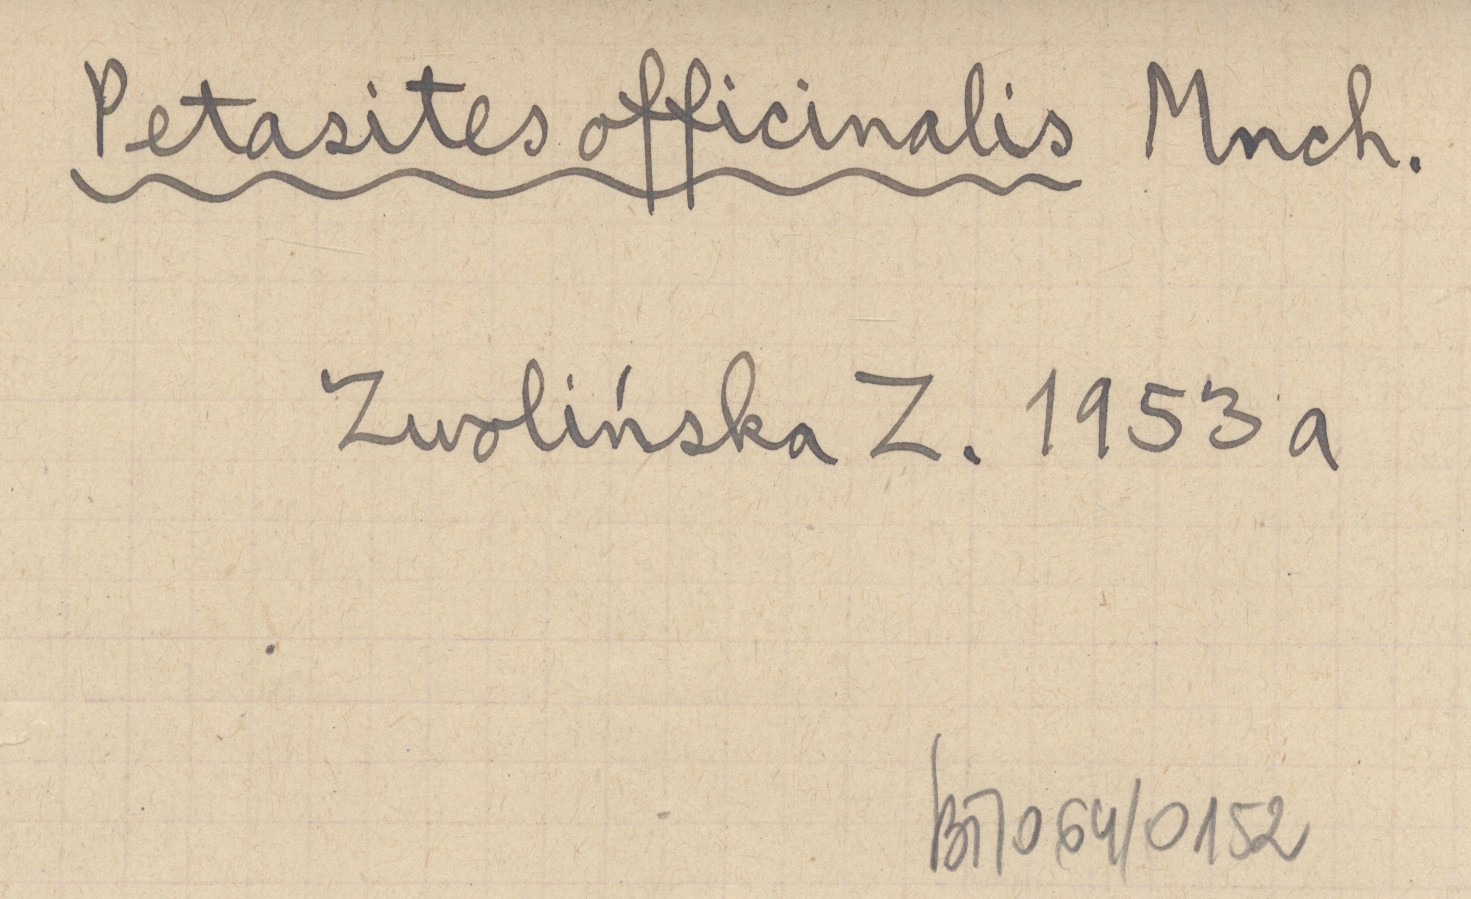 Petasites officinalis Mnch.
Zwolińska Z. 1953 a
064/0152